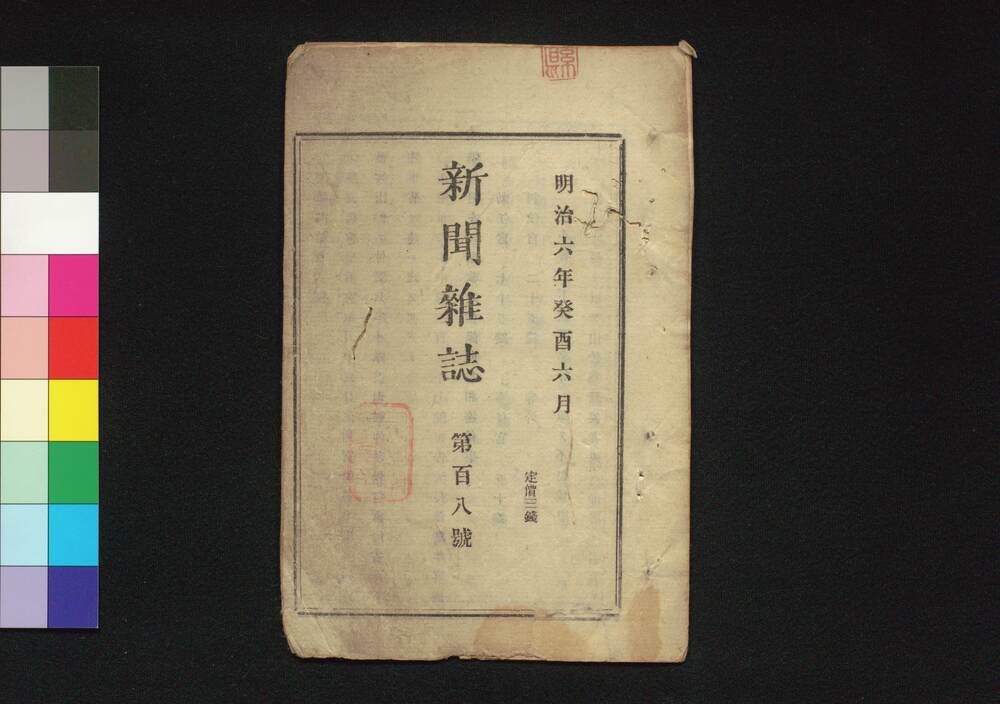 明治六年癸酉六月
定價三錢
新聞雜誌
第百八號
縣